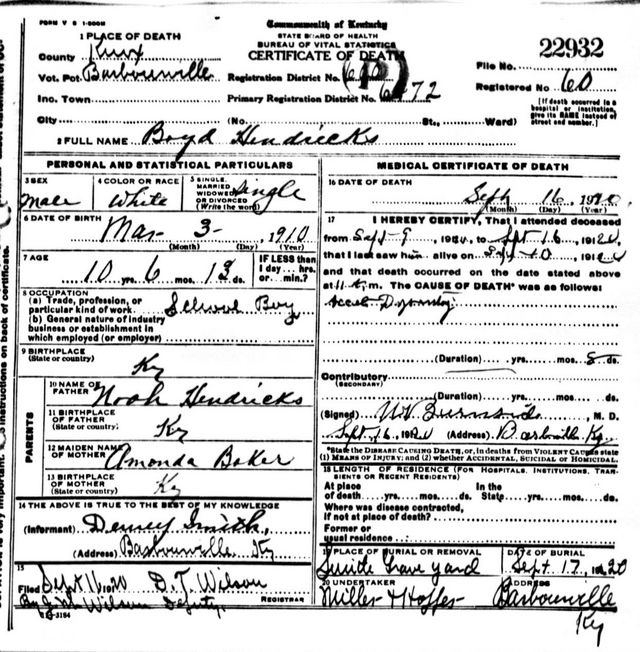 FORM V S 1-500M
Commonwealth of Kentucky
STATE BOARD OF HEALTH
BUREAU OF VITAL STATISTICS
CERTIFICATE OF DEATH
22932
1 PLACE OF DEATH
County Knox
Vot. Pct. Barbourville
Inc. Town
City
(No. St., Ward)
Registration District No.
Primary Registration District No.
File No.
Registered No. 60
[If death occurred in a hospital or institution, give its NAME instead of street and number.]
2 FULL NAME Boyd Hendricks
PERSONAL AND STATISTICAL PARTICULARS
3 SEX Male
4 COLOR OR RACE White
5 SINGLE, MARRIED WIDOWED OR DIVORCED (Write the word) Single
6 DATE OF BIRTH Mar 3 1910
(Month) (Day) (Year)
7 AGE 10 yrs. 6 mos. 13 ds.
IF LESS than 1 day ... hrs. or min.?
8 OCCUPATION
(a) Trade, profession, or particular kind of work School Boy
(b) General nature of industry business or establishment in which employed (or employer)
9 BIRTHPLACE (State or country) Ky
PARENTS
10 NAME OF FATHER Noah Hendricks
11 BIRTHPLACE OF FATHER (State or country) Ky
12 MAIDEN NAME OF MOTHER Amonda Baker
13 BIRTHPLACE OF MOTHER (State or country) Ky
14 THE ABOVE IS TRUE TO THE BEST OF MY KNOWLEDGE
(Informant) Smith
(Address) Barbourville Ky
15 Filed Sept 16 1920 D. T. Wilson
REGISTRAR
By J.M. Wilson Deputy.
MEDICAL CERTIFICATE OF DEATH
16 DATE OF DEATH Sept 16 1920
(Month) (Day) (Year)
17 I HEREBY CERTIFY, That I attended deceased
from Sept 9, 1920, to Sept 16, 1920,
that I last saw him alive on Sept 10, 1920
and that death occurred on the date stated above
at 11 m. The CAUSE OF DEATH* was as follows:
(Duration) yrs. mos. 8 ds.
Contributory
(SECONDARY)
(Duration) yrs. mos. ds.
(Signed) M. D.
Sept 16, 1920 (Address) Ky.
*State the DISEASE CAUSING DEATH, or, in deaths from VIOLENT CAUSES state (1) MEANS OF INJURY; and (2) whether ACCIDENTAL, SUICIDAL or HOMICIDAL.
18 LENGTH OF RESIDENCE (FOR HOSPITALS, INSTITUTIONS, TRANSIENTS OR RECENT RESIDENTS)
At place of death yrs. mos. ds. In the State yrs. mos. ds.
Where was disease contracted, if not at place of death?
Former or usual residence
19 PLACE OF BURIAL OR REMOVAL Grave yard
DATE OF BURIAL Sept. 17, 1920
20 UNDERTAKER Miller & Hoffer
ADDRESS Barbourville Ky